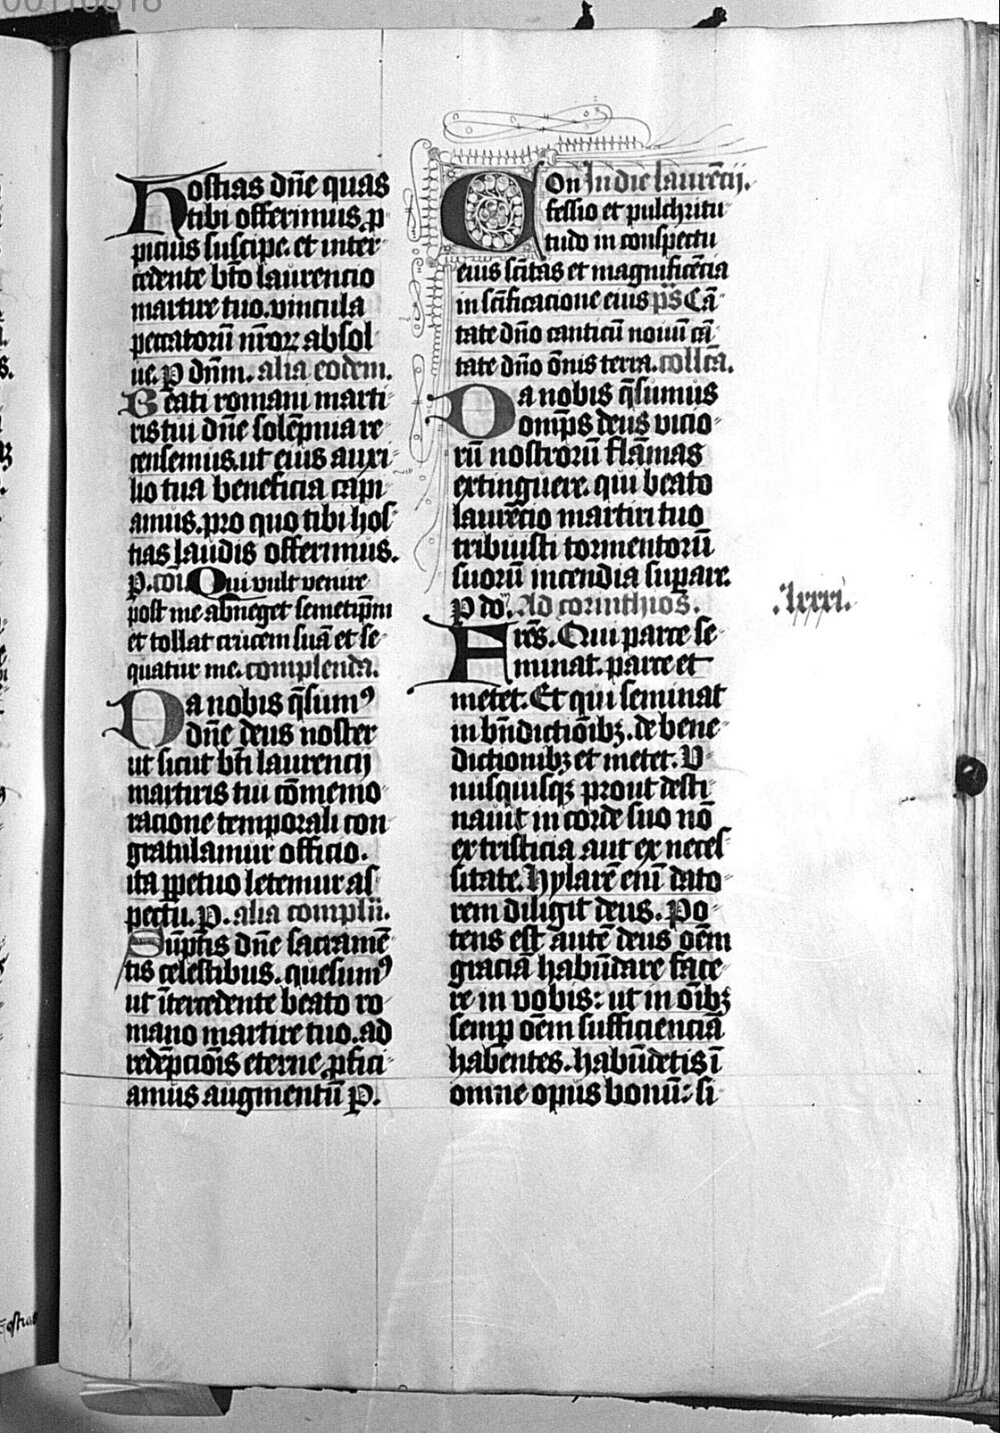 00110818
Hostias dn̄e quas
tibi offerimus ꝓ
picius suscipe. et inter
cedente bt̄o laurencio
martire tuo. vincula
peccatorū nr̄oꝝ absol
ue. P dn̄m. alia eodem.
Beati romani marti
ris tui dn̄e solēpnia re
censemus. ut eius auxi
lio tua beneficia capi
amus. pro quo tibi hos
tias laudis offerimus.
p. cōi. Qui vult venire
post me abneget semetip̄m
et tollat crucem suā et se
quatur me. complenda.
Da nobis q̄sumꝰ
dn̄e deus noster
ut sicut bt̄i laurencij
martiris tui cōmemo
racione temporali con
gratulamur officio.
ita ꝑpetuo letemur as
pectu. P. alia complīī.
Sūptis dn̄e sacramē
tis celestibus. quesumꝰ
ut īntercedente beato ro
mano martire tuo. ad
redēpciōis eterne ꝓfici
amus augmentū P.
In die laurēcij.
Con
fessio et pulchritu
tudo in conspectu
eius sc̄itas et magnificēcia
in sc̄ificacione eius p̄s Cā
tate dn̄o canticū nouū cā
tate dn̄o ōnis terra. coll̄cā.
Da nobis q̄sumus
omp̄s deus vicio
rū nostrorū flāmas
extinguere. qui beato
laurēcio martiri tuo
tribuisti tormentorū
suorū incendia suꝑare.
P do. Ad corinthios.
Fres̄. Qui parce se
minat. parce et
metet. Et qui seminat
in bn̄dictiōibꝫ. de bene
dictionibꝫ et metet. V
nusquisqꝫ prout desti
nauit in corde suo nō
ex tristicia aut ex neces
sitate. hylarē enī dato
rem diligit deus. Po
tens est autē deus oēm
graciā habūdare face
re in vobis: ut in oībꝫ
semꝑ oēm sufficienciā
habentes. habūdetis ī
omne opus bonū: si
.lxxxi.